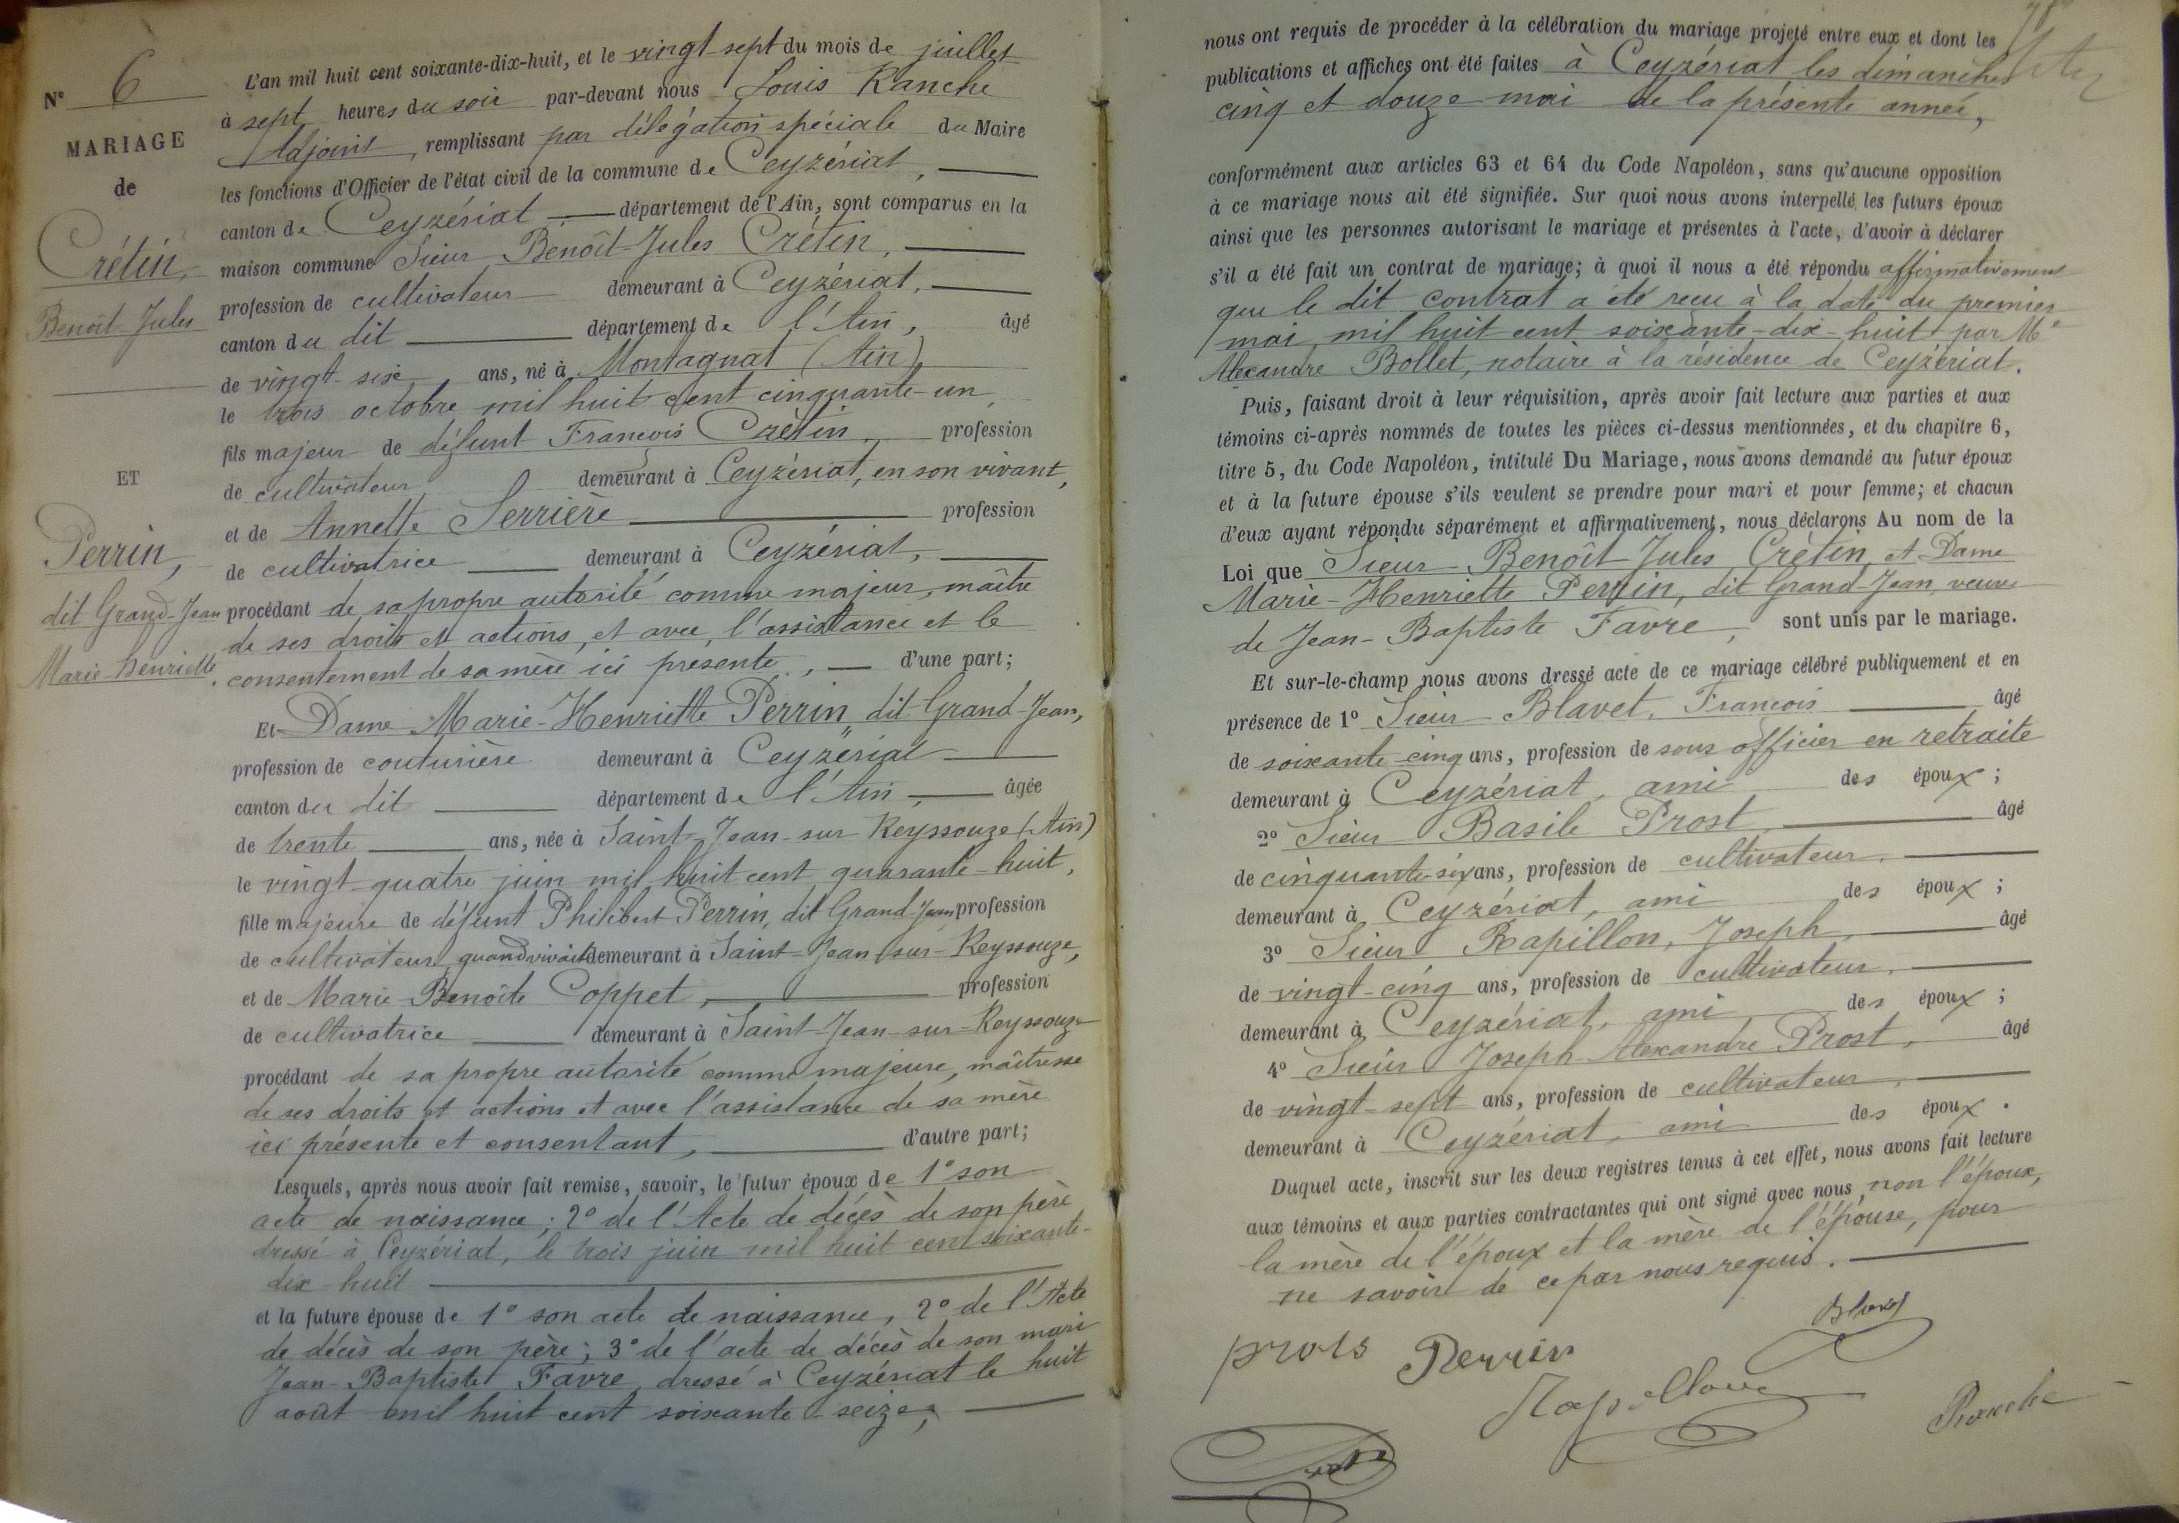 N° 6
MARIAGE
de
Crétin,
Benoît Jules
ET
Perrin,
dit Grand-Jean
Marie-henriette.
L'an mil huit cent soixante-dix-huit, et le vingt sept du mois de juillet
à sept heures du soir par-devant nous Louis Ranche
Adjoint, remplissant par délégation spéciale du Maire
les fonctions d'Officier de l'état civil de la commune de Ceyzériat,
canton de Ceyzériat département de l'Ain, sont comparus en la
maison commune Sieur Benoît-Jules Crétin,
profession de cultivateur demeurant à Ceyzériat,
canton du dit département de l'Ain, âgé
de vingt-six ans, né à Montagnat (Ain)
le trois octobre mil huit cent cinquante-un,
fils majeur de défunt François Crétin, profession
de cultivateur demeurant à Ceyzériat, en son vivant,
et de Annette Serrière profession
de cultivatrice demeurant à Ceyzériat,
procédant de sa propre autorité comme majeur, maître
de ses droits et actions, et avec l'assistance et le
consentement de sa mère ici présente, d'une part;
Et Dame Marie-Henriette Perrin dit Grand-Jean,
profession de couturière demeurant à Ceyzériat
canton du dit département de l'Ain, âgée
de trente ans, née à Saint-Jean-sur Reyssouze (Ain)
le vingt-quatre juin mil huit cent quarante-huit,
fille majeure de défunt Philibert Perrin, dit Grand-Jean profession
de cultivateur, quand vivait demeurant à Saint-Jean-sur-Reyssouze,
et de Marie-Benoîte Coppet, profession
de cultivatrice demeurant à Saint-Jean-sur-Reyssouze
procédant de sa propre autorité comme majeure, maîtresse
de ses droits et actions et avec l'assistance de sa mère
ici présente et consentant, d'autre part;
Lesquels, après nous avoir fait remise, savoir, le futur époux de 1° son
acte de naissance; 2° de l'Acte de décès de son père
dressé à Ceyzériat, le trois juin mil huit cent soixante-
dix-huit
et la future épouse de 1° son acte de naissance, 2° de l'Acte
de décès de son père; 3° de l'acte de décès de son mari
Jean-Baptiste Favre, dressé à Ceyzériat le huit
août mil huit cent soixante-seize;
nous ont requis de procéder à la célébration du mariage projeté entre eux et dont les
publications et affiches ont été faites à Ceyzériat les dimanches
cinq et douze mai de la présente année,
conformément aux articles 63 et 64 du Code Napoléon, sans qu'aucune opposition
à ce mariage nous ait été signifiée. Sur quoi nous avons interpellé les futurs époux
ainsi que les personnes autorisant le mariage et présentes à l'acte, d'avoir à déclarer
s'il a été fait un contrat de mariage; à quoi il nous a été répondu affirmativement
que le dit contrat a été reçu à la date du premier
mai mil huit cent soixante-dix-huit par Me
Alexandre Bollet, notaire à la résidence de Ceyzériat.
Puis, faisant droit à leur réquisition, après avoir fait lecture aux parties et aux
témoins ci-après nommés de toutes les pièces ci-dessus mentionnées, et du chapitre 6,
titre 5, du Code Napoléon, intitulé Du Mariage, nous avons demandé au futur époux
et à la future épouse s'ils veulent se prendre pour mari et pour femme; et chacun
d'eux ayant répondu séparément et affirmativement, nous déclarons Au nom de la
Loi que Sieur Benoît Jules Crétin et Dame
Marie-Henriette Perrin, dit Grand-Jean, veuve
de Jean-Baptiste Favre, sont unis par le mariage.
Et sur-le-champ nous avons dressé acte de ce mariage célébré publiquement et en
présence de 1° Sieur Blavet, François âgé
de soixante-cinq ans, profession de sous officier en retraite
demeurant à Ceyzériat, ami des époux;
2° Sieur Basile Prost, âgé
de cinquante-six ans, profession de cultivateur,
demeurant à Ceyzériat, ami des époux;
3° Sieur Rapillon, Joseph, âgé
de vingt-cinq ans, profession de cultivateur,
demeurant à Ceyzériat, ami des époux;
4° Sieur Joseph Alexandre Prost, âgé
de vingt-sept ans, profession de cultivateur,
demeurant à Ceyzériat, ami des époux.
Duquel acte, inscrit sur les deux registres tenus à cet effet, nous avons fait lecture
aux témoins et aux parties contractantes qui ont signé avec nous, non l'époux,
la mère de l'époux et la mère de l'épouse, pour
ne savoir de ce par nous requis.
Blavet
prots Perrin
Rapillon
Ranche